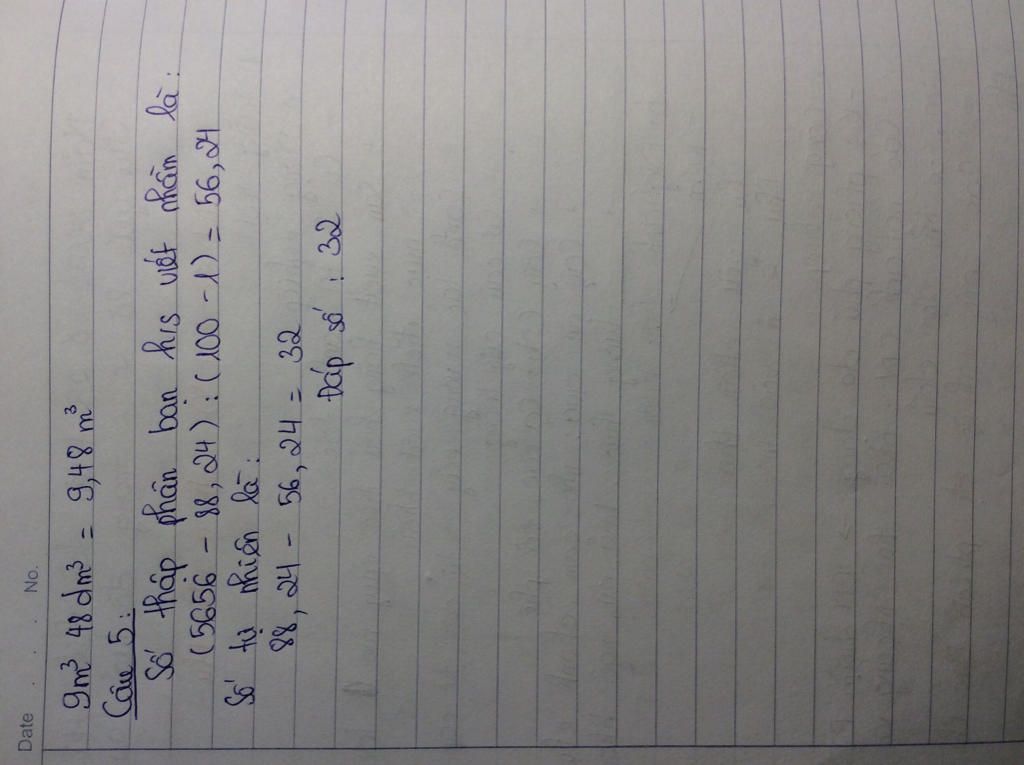 Date . . No.
9m³ 48dm³ = 9,48 m³
Câu 5:
Số thập phân bạn h/s viết nhầm là:
(5656 - 88,24) : (100 - 1) = 56,24
Số tự nhiên là:
88,24 - 56,24 = 32
Đáp số : 32